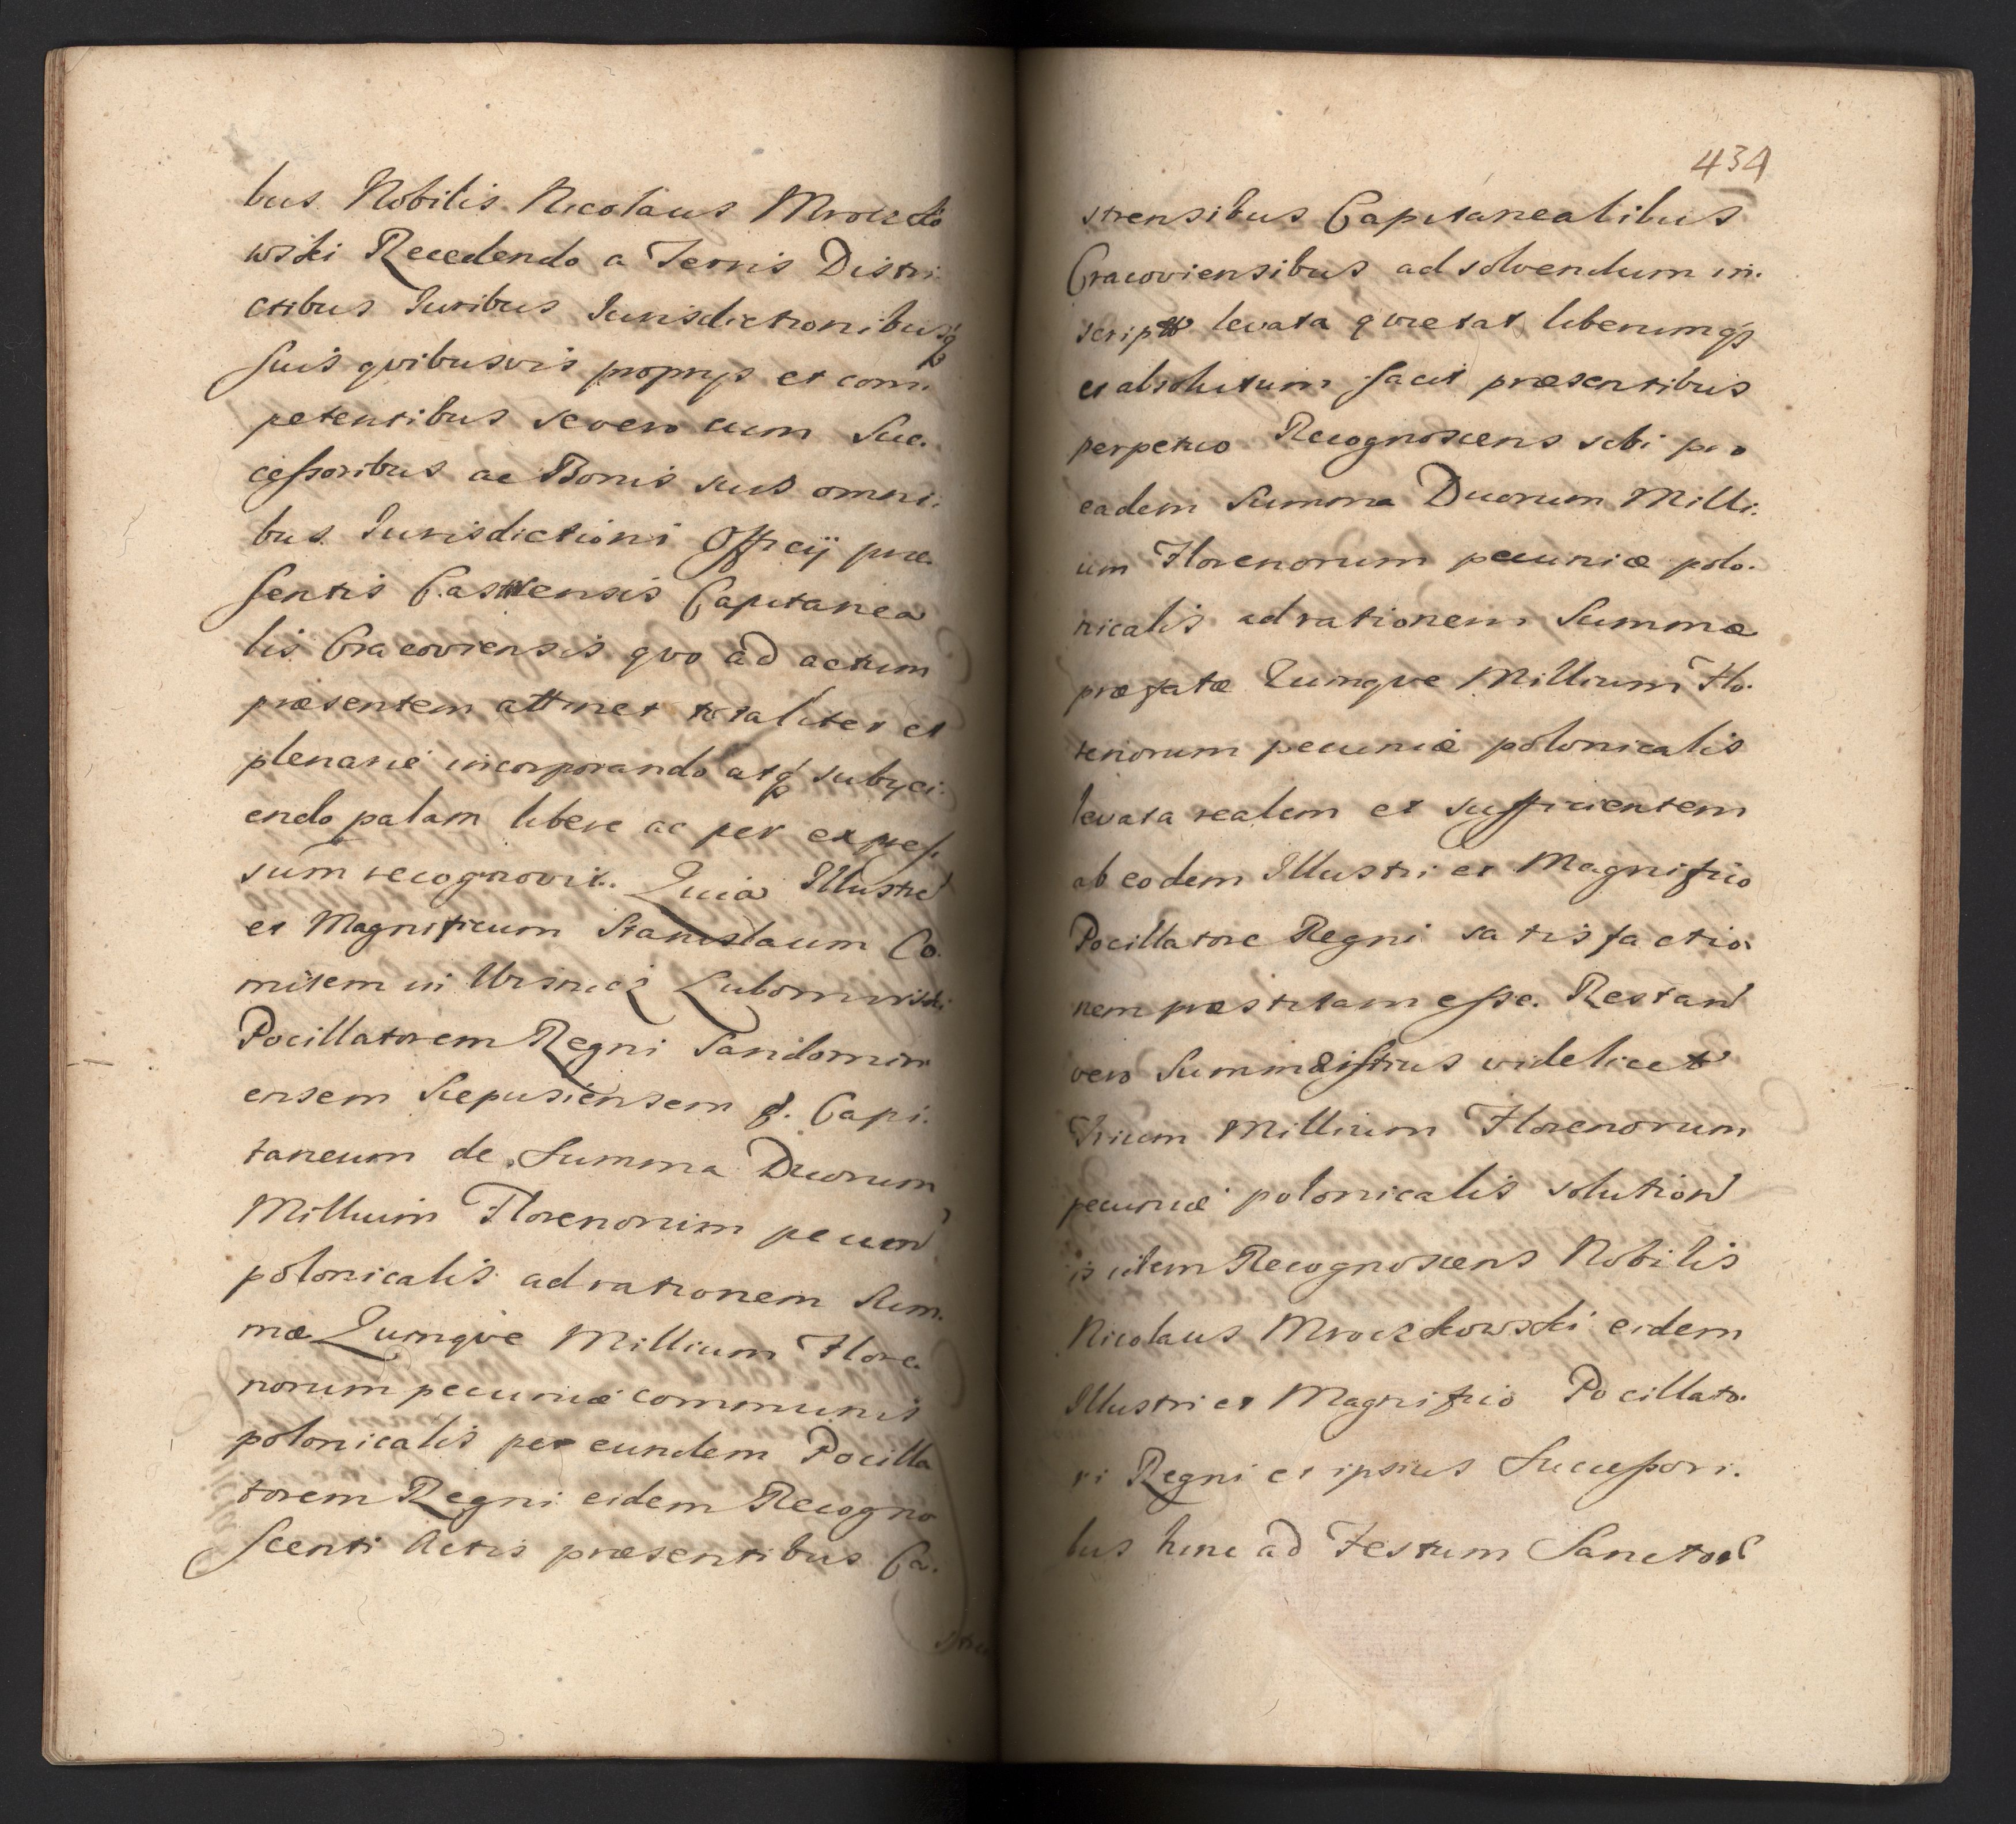 bus Nobilis Nicolaus Mroczko
wski Recedendo a Terris Distri:
ctibus Juribus Jurisdictionibusq
suis qvibusvis proprys et com:
petentibus se vero cum Suc:
cessoribus ac Bonis suis omni:
bus Jurisdictioni Officij præ
sentis Castrensis Capitanea
lis Cracoviensis qvo ad actum
præsentem attinet totaliter et
plenarie incorporando atq subyci:
endo palam libere ac per expres
sum recognovit. Quia Illustre
et Magnificum Stanislaum Co:
mitem in Wisnicz Lubomirski
Pocillatorem Regni Sandomiri
ensem Scepusiensem &. Capi:
taneum de Summa Duorum
Millium Florenorum pecun
polonicalis ad rationem Sum:
mæ Quinqve Millium Flore
norum pecuniæ communis
polonicalis per eundem Pocilla
torem Regni eidem Recogno
scenti Actis præsentibus Ca:
434
strensibus Capitanealibus
Cracoviensibus ad solvendum in:
script levata qvietat liberumq
et absolutum facit præsentibus
perpetuo Recognoscens sibi pro
eadem Summa Duorum Milli:
um Florenorum pecuniæ polo:
nicalis ad rationem Summæ
præfatæ Quinqve Millium Flo:
renorum pecuniæ polonicalis
levata realem et sufficientem
ab eodem Illustri et Magnifico
Pocillatore Regni satisfactio:
nem præstitam esse. Restan
vero Summæ istius videlicet
Trium Millium Florenorum
pecuniæ polonicalis solution
is idem Recognoscens Nobilis
Nicolaus Mroczkowski eidem
Illustri et Magnifico Pocillato:
ri Regni et ipsius Successori:
bus hinc ad Festum Sanctor